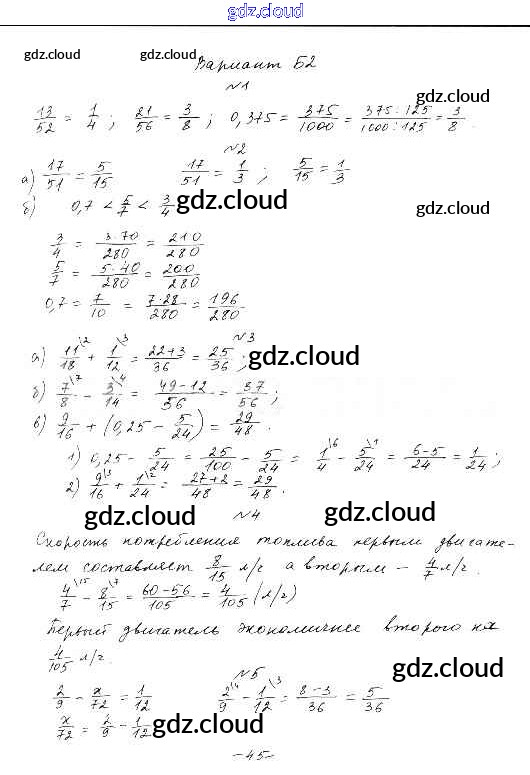 gdz.cloud
gdz.cloud gdz.cloud
Вариант Б2 gdz.cloud
№1 gdz.cloud
13/52 = 1/4 ; 21/56 = 3/8 ; 0,375 = 375/1000 = 375:125/1000:125 = 3/8 .
№2
а) 17/51 = 5/15 17/51 = 1/3 ; 5/15 = 1/3
б) 0,7 < 5/7 < 3/4 gdz.cloud gdz.cloud
3/4 = 3·70/280 = 210/280
5/7 = 5·40/280 = 200/280
0,7 = 7/10 = 7·28/280 = 196/280
№3
а) 11/18\2 + 1/12\3 = 22+3/36 = 25/36 ; gdz.cloud
б) 7/8\7 - 3/14\4 = 49-12/56 = 37/56 ;
в) 9/16 + (0,25 - 5/24) = 29/48 .
1) 0,25 - 5/24 = 25/100 - 5/24 = 1/4\6 - 5/24\1 = 6-5/24 = 1/24 ;
2) 9/16\3 + 1/24\2 = 27+2/48 = 29/48 .
gdz.cloud №4 gdz.cloud
Скорость потребления топлива первым двигате-
лем составляет 8/15 л/г а вторым - 4/7 л/г.
4/7\15 - 8/15\7 = 60-56/105 = 4/105 (л/г)
Первый двигатель экономичнее второго на
4/105 л/г.
№5 gdz.cloud
2/9 - x/72 = 1/12 2/9\4 - 1/12\3 = 8-3/36 = 5/36
x/72 = 2/9 - 1/12 gdz.cloud
-45-